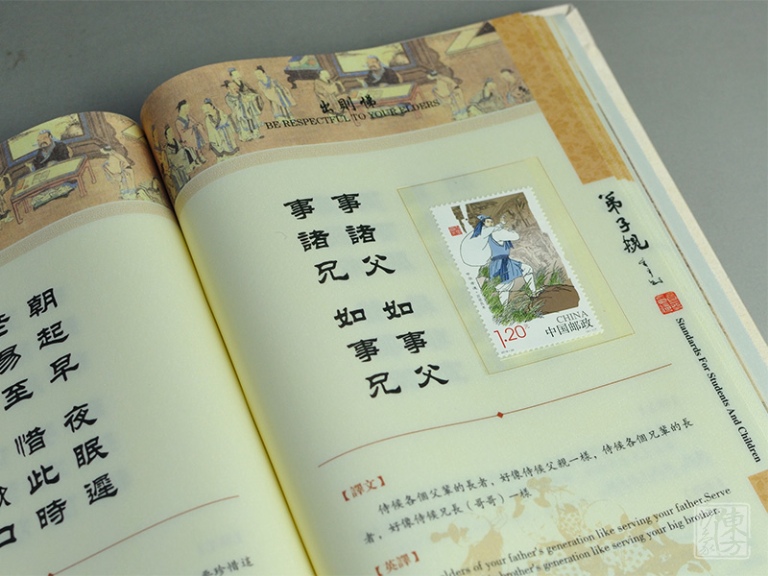 朝起早
夜眠遲
易至
惜此時
出則悌
BE RESPECTFUL TO YOUR ELDERS
事諸父
如事父
事諸兄
如事兄
CHINA
中国邮政
1.20
弟子規
Standards For Students And Children
【譯文】
侍候各個父輩的長者，好像侍候父親一樣，侍候各個兄輩的長
者，好像侍候兄長（哥哥）一樣
【英譯】
elders of your father's generation like serving your father.Serve
brother's generation like serving your big brother.